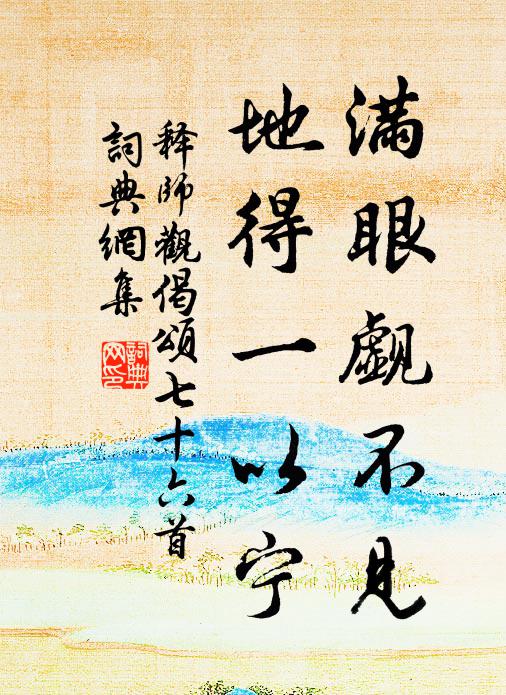 滿眼覷不見
地得一以宁
释師觀偈頌七十六首
詞典網集
詞典
网印